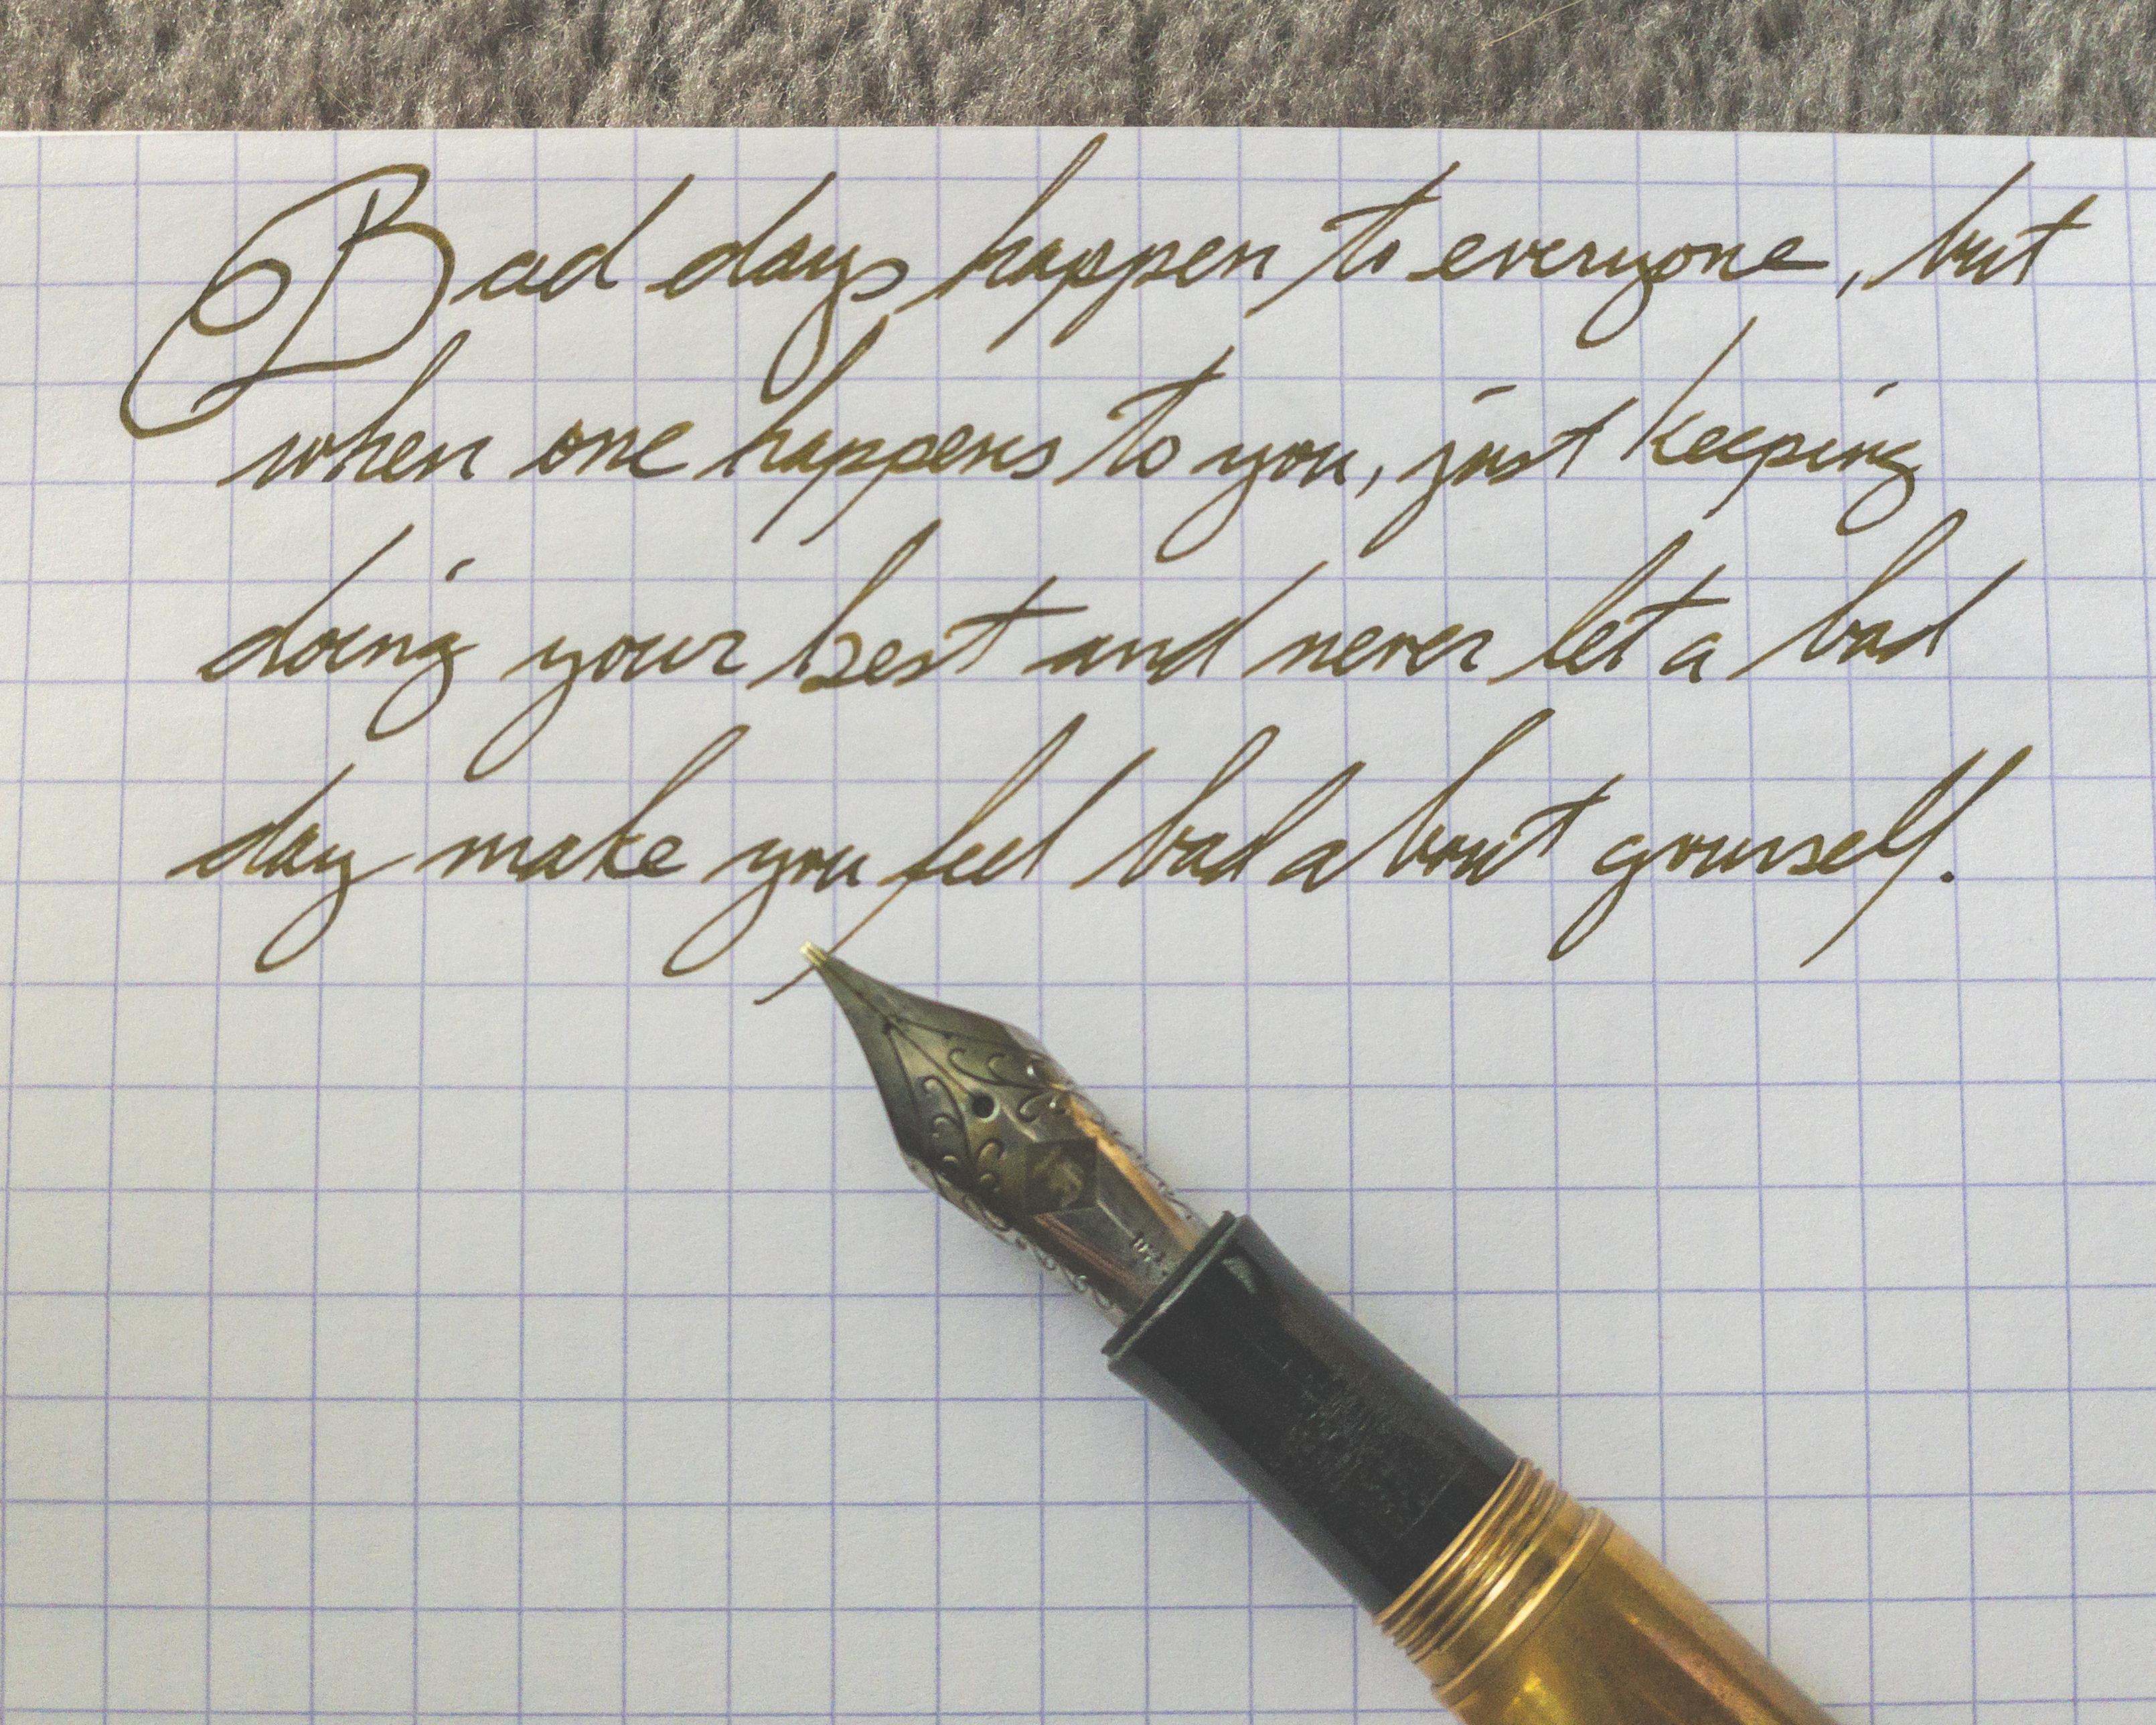 Bad days happen to everyone, but
when one happens to you, just keeping
doing your best and never let a bad
day make you feel bad about yourself.